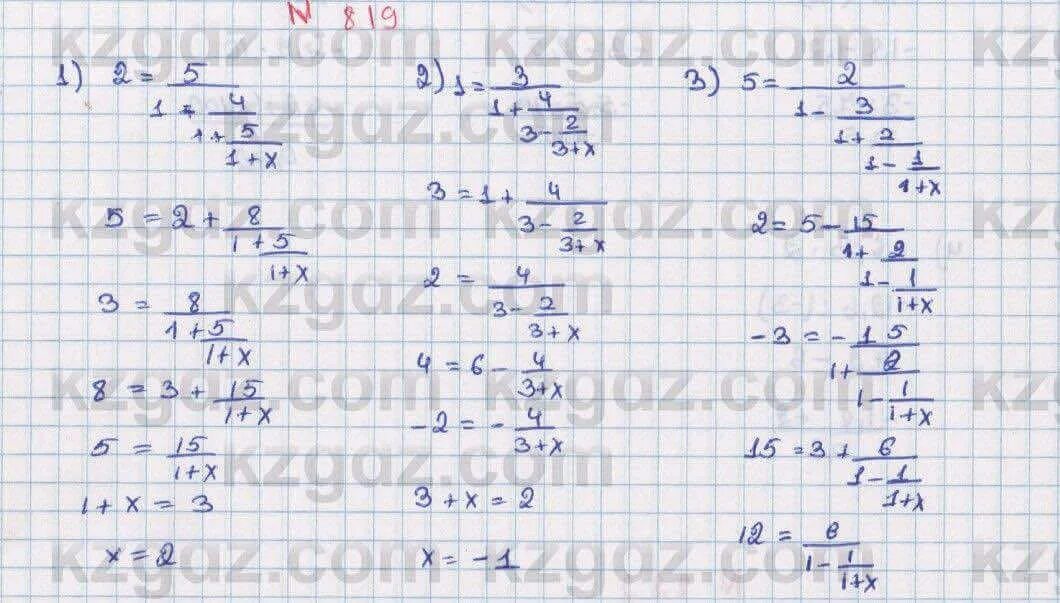 N 819
1) 2 = 5/(1 + 4/(1 + 5/(1 + x)))
5 = 2 + 8/(1 + 5/(1 + x))
3 = 8/(1 + 5/(1 + x))
8 = 3 + 15/(1 + x)
5 = 15/(1 + x)
1 + x = 3
x = 2
2) 1 = 3/(1 + 4/(3 - 2/(3 + x)))
3 = 1 + 4/(3 - 2/(3 + x))
2 = 4/(3 - 2/(3 + x))
4 = 6 - 4/(3 + x)
-2 = -4/(3 + x)
3 + x = 2
x = -1
3) 5 = 2/(1 - 3/(1 + 2/(1 - 1/(1 + x))))
2 = 5 - 15/(1 + 2/(1 - 1/(1 + x)))
-3 = -15/(1 + 2/(1 - 1/(1 + x)))
15 = 3 + 6/(1 - 1/(1 + x))
12 = 6/(1 - 1/(1 + x))
kzgdz.com